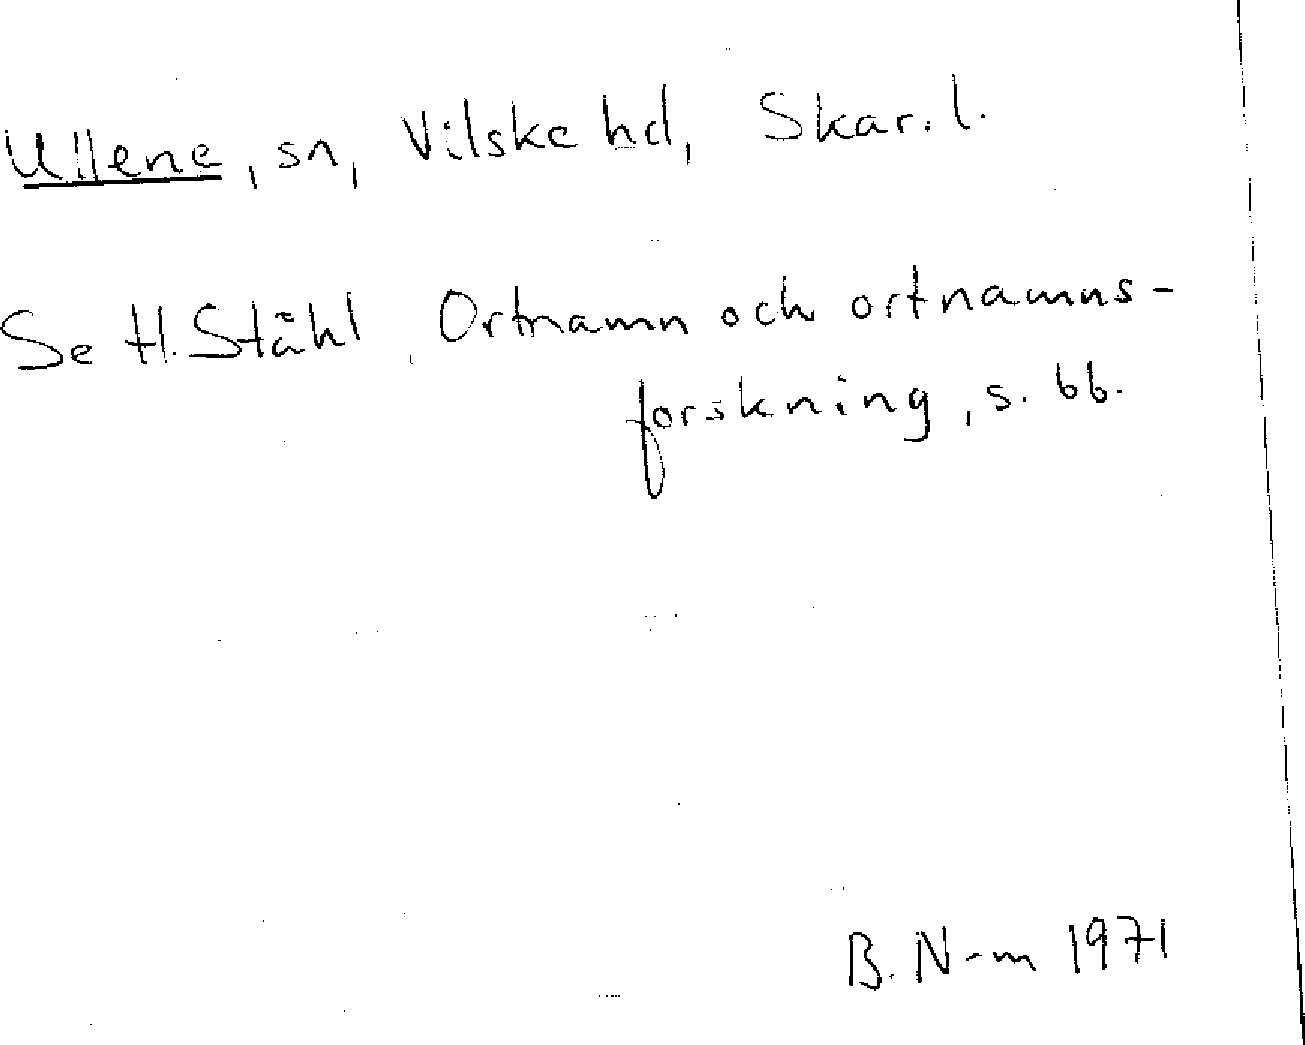 Ullene, sn, Vilske hd, Skar. l.
Se H. Ståhl, Ortnamn och ortnamns-
forskning, s. 66.
B. N-m 1971